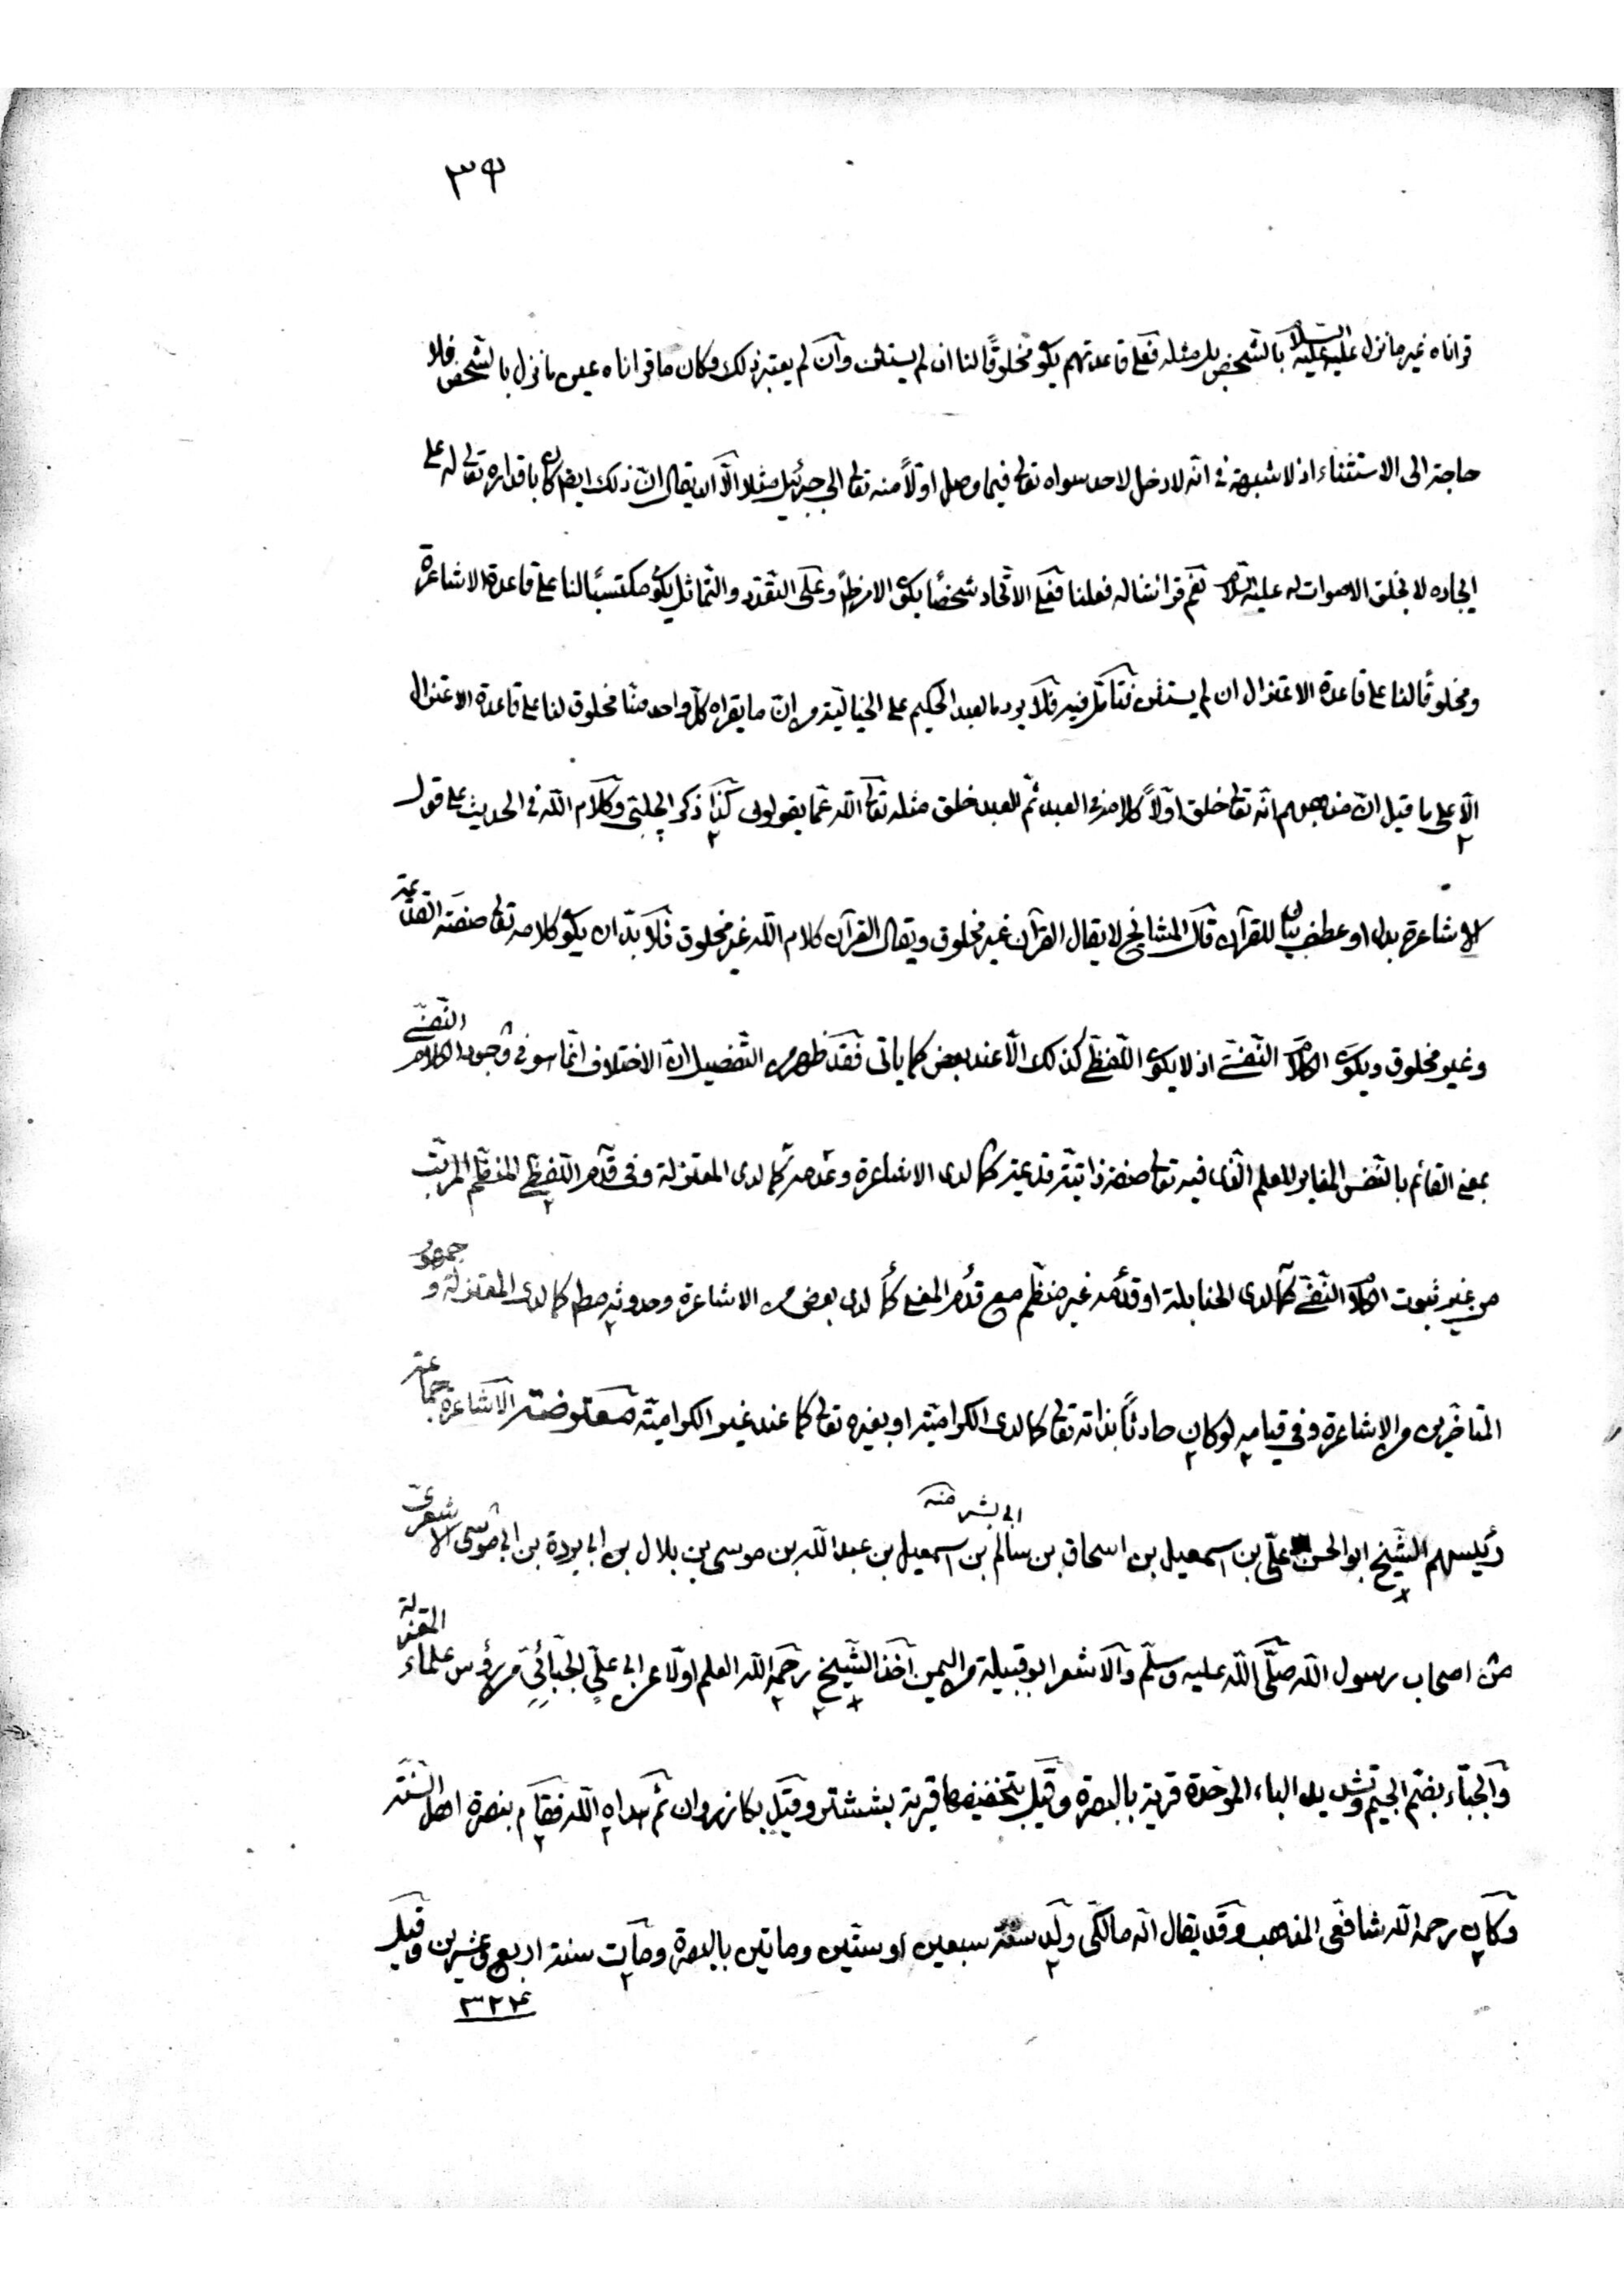 ٣٩
قراناه غير ما نزل عليه عليه السلام بالشخص بل مثله فعلى قاعدتهم يكو مخلوقًا لنا ان لم يستثن وان لم يعتبر ذلك وكان ما قراناه عين ما نزل بالشخص فلا
حاجة الى الاستثناء اذ لا شبهة في انه لا دخل لاحد سواه تعالى فيما وصل اولاً منه تعالى الى جبرئيل مثلا الا ان يقال ان ذلك ايضا كان باقداره تعالى له على
ايجاده لا بخلق الاصوات له عليه السلام نعم قرانتنا له فعلنا فعلى الاتحاد شخصًا يكون وعلى التعدد والتماثل يكو مكتسبًا لنا على قاعدة الاشاعرة
ومخلوقًا لنا على قاعدة الاعتزال ان لم يستثن فتأمل فيه فلا يرد ما لعبد الحكيم على الخيالي من ان ما يقراه كل واحد منا مخلوق لنا على قاعدة الاعتزال
الا على ما قيل ان مذهبهم انه تعالى خلق اولاً كلامه في العبد ثم للعبد خلق مثله تعالى الله عما يقولون كذا ذكر الجلبي وكلام الله في الحديث على قول
الاشاعرة بدل او عطف بيان للقرآن قال المشائخ لا يقال القرآن غير مخلوق ويقال القرآن كلام الله غير مخلوق فلا بد ان يكو كلامه تعالى صفته القائمة
وغير مخلوق ويكون الكلام النفسي اذ لا يكون اللفظي كذلك الا عند بعض كما ياتى فقد ظهر من التفصيل ان الاختلاف انما هو في وجود الكلام النفسي
بمعنى القائم بالنفس المغاير للعلم الذى فيه تعالى صفة ذاتية قديمة كما لدى الاشاعرة وعدمه كما لدى المعتزلة وفى قدم اللفظي المنظم المرتب
من غير ثبوت الكلام النفسي كما لدى الحنابلة او قدمه غير منظم مع قدم المعنى كما لدى بعض من الاشاعرة وحدوثه مطلقا كما لدى المعتزلة و جمهور
المتاخرين من الاشاعرة وفي قيامه لو كان حادثًا بذاته تعالى كما لدى الكرامية او بغيره تعالى كما عند غير الكرامية معترضة الاشاعرة جماعة
رئيسهم الشيخ ابو الحسن على بن اسمعيل بن اسحاق بن سالم بن اسمعيل بن عبد الله بن موسى بن بلال بن ابى بردة بن ابى موسى الاشعرى
ابى بشر منه
من اصحاب رسول الله صلى الله عليه وسلم والاشعر ابو قبيلة من اليمن اخذ الشيخ رحمه الله العلم اولا عن ابى على الجبائي من رؤس علماء المعتزلة
والجباء بضم الجيم وتشديد الباء الموحدة قرية بالبصرة وقيل بتخفيفها قرية بششتر وقيل بكازروان ثم هداه الله فقام بنصرة اهل السنة
وكان رحمه الله شافعى المذهب وقد يقال انه مالكى ولد سنة سبعين او ستين ومايتين بالبصرة ومات سنة اربع وعشرين وقيل
٣٢٤